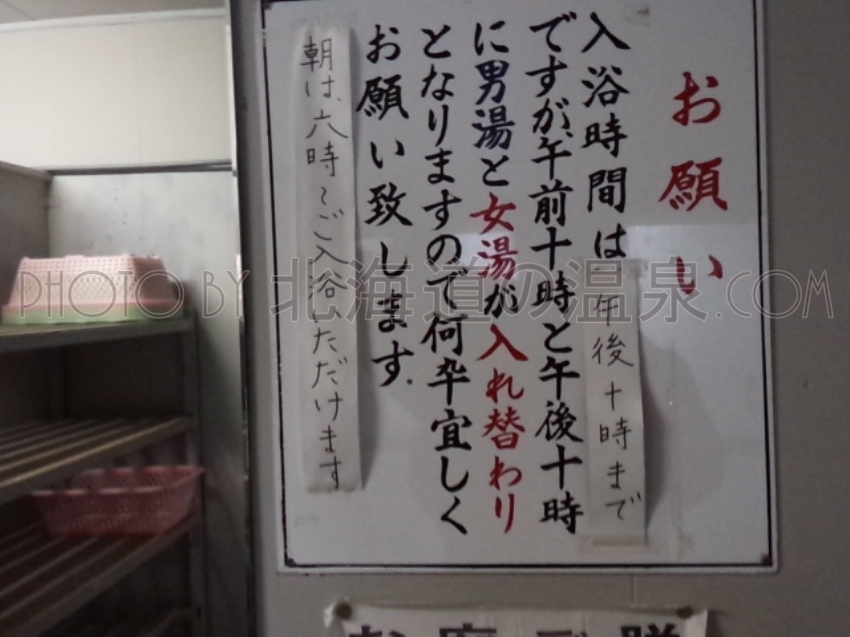 お願い
入浴時間は午後十時まで
ですが、午前十時と午後十時
に男湯と女湯が入れ替わり
となりますので何卒宜しく
お願い致します.
朝は、六時〜ご入浴いただけます
PHOTO BY 北海道の温泉.COM